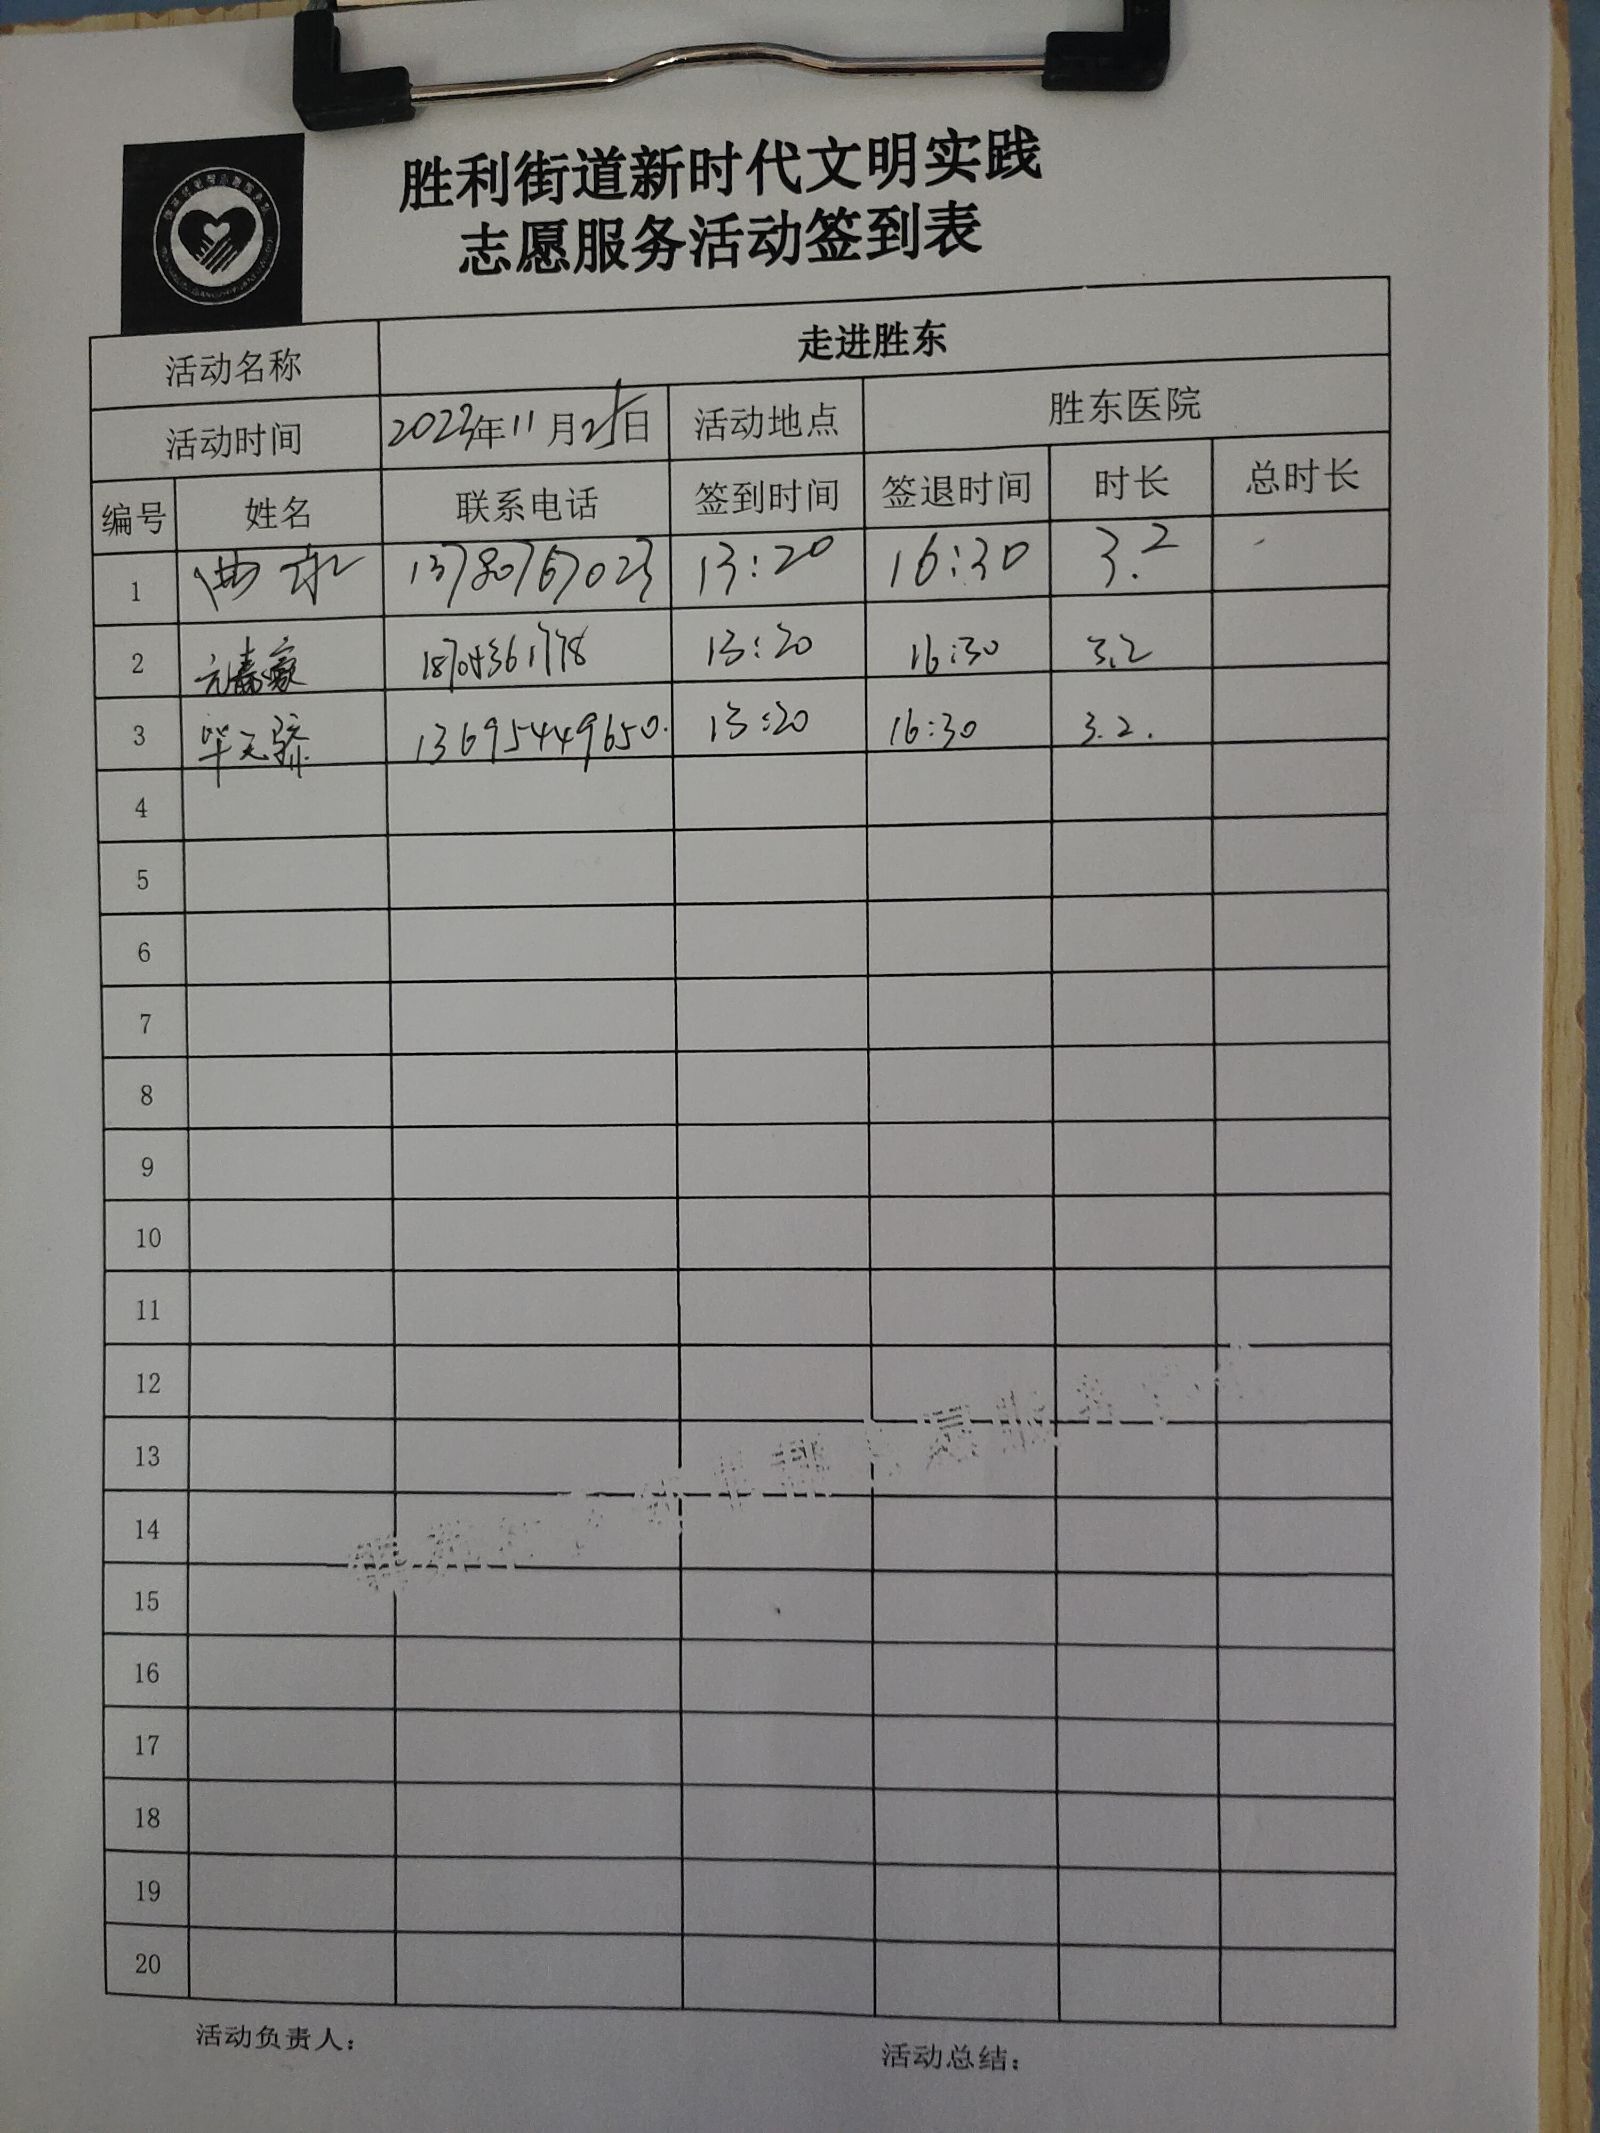 胜利街道新时代文明实践
志愿服务活动签到表
活动名称 走进胜东
活动时间 2023年11月25日 活动地点 胜东医院
编号 姓名 联系电话 签到时间 签退时间 时长 总时长
1 13780767023 13:20 16:30 3.2
2 13:20 16:30 3.2
3 毕天骄 13695449650. 13:20 16:30 3.2.
4
5
6
7
8
9
10
11
12
13
14
15
16
17
18
19
20
活动负责人： 活动总结：